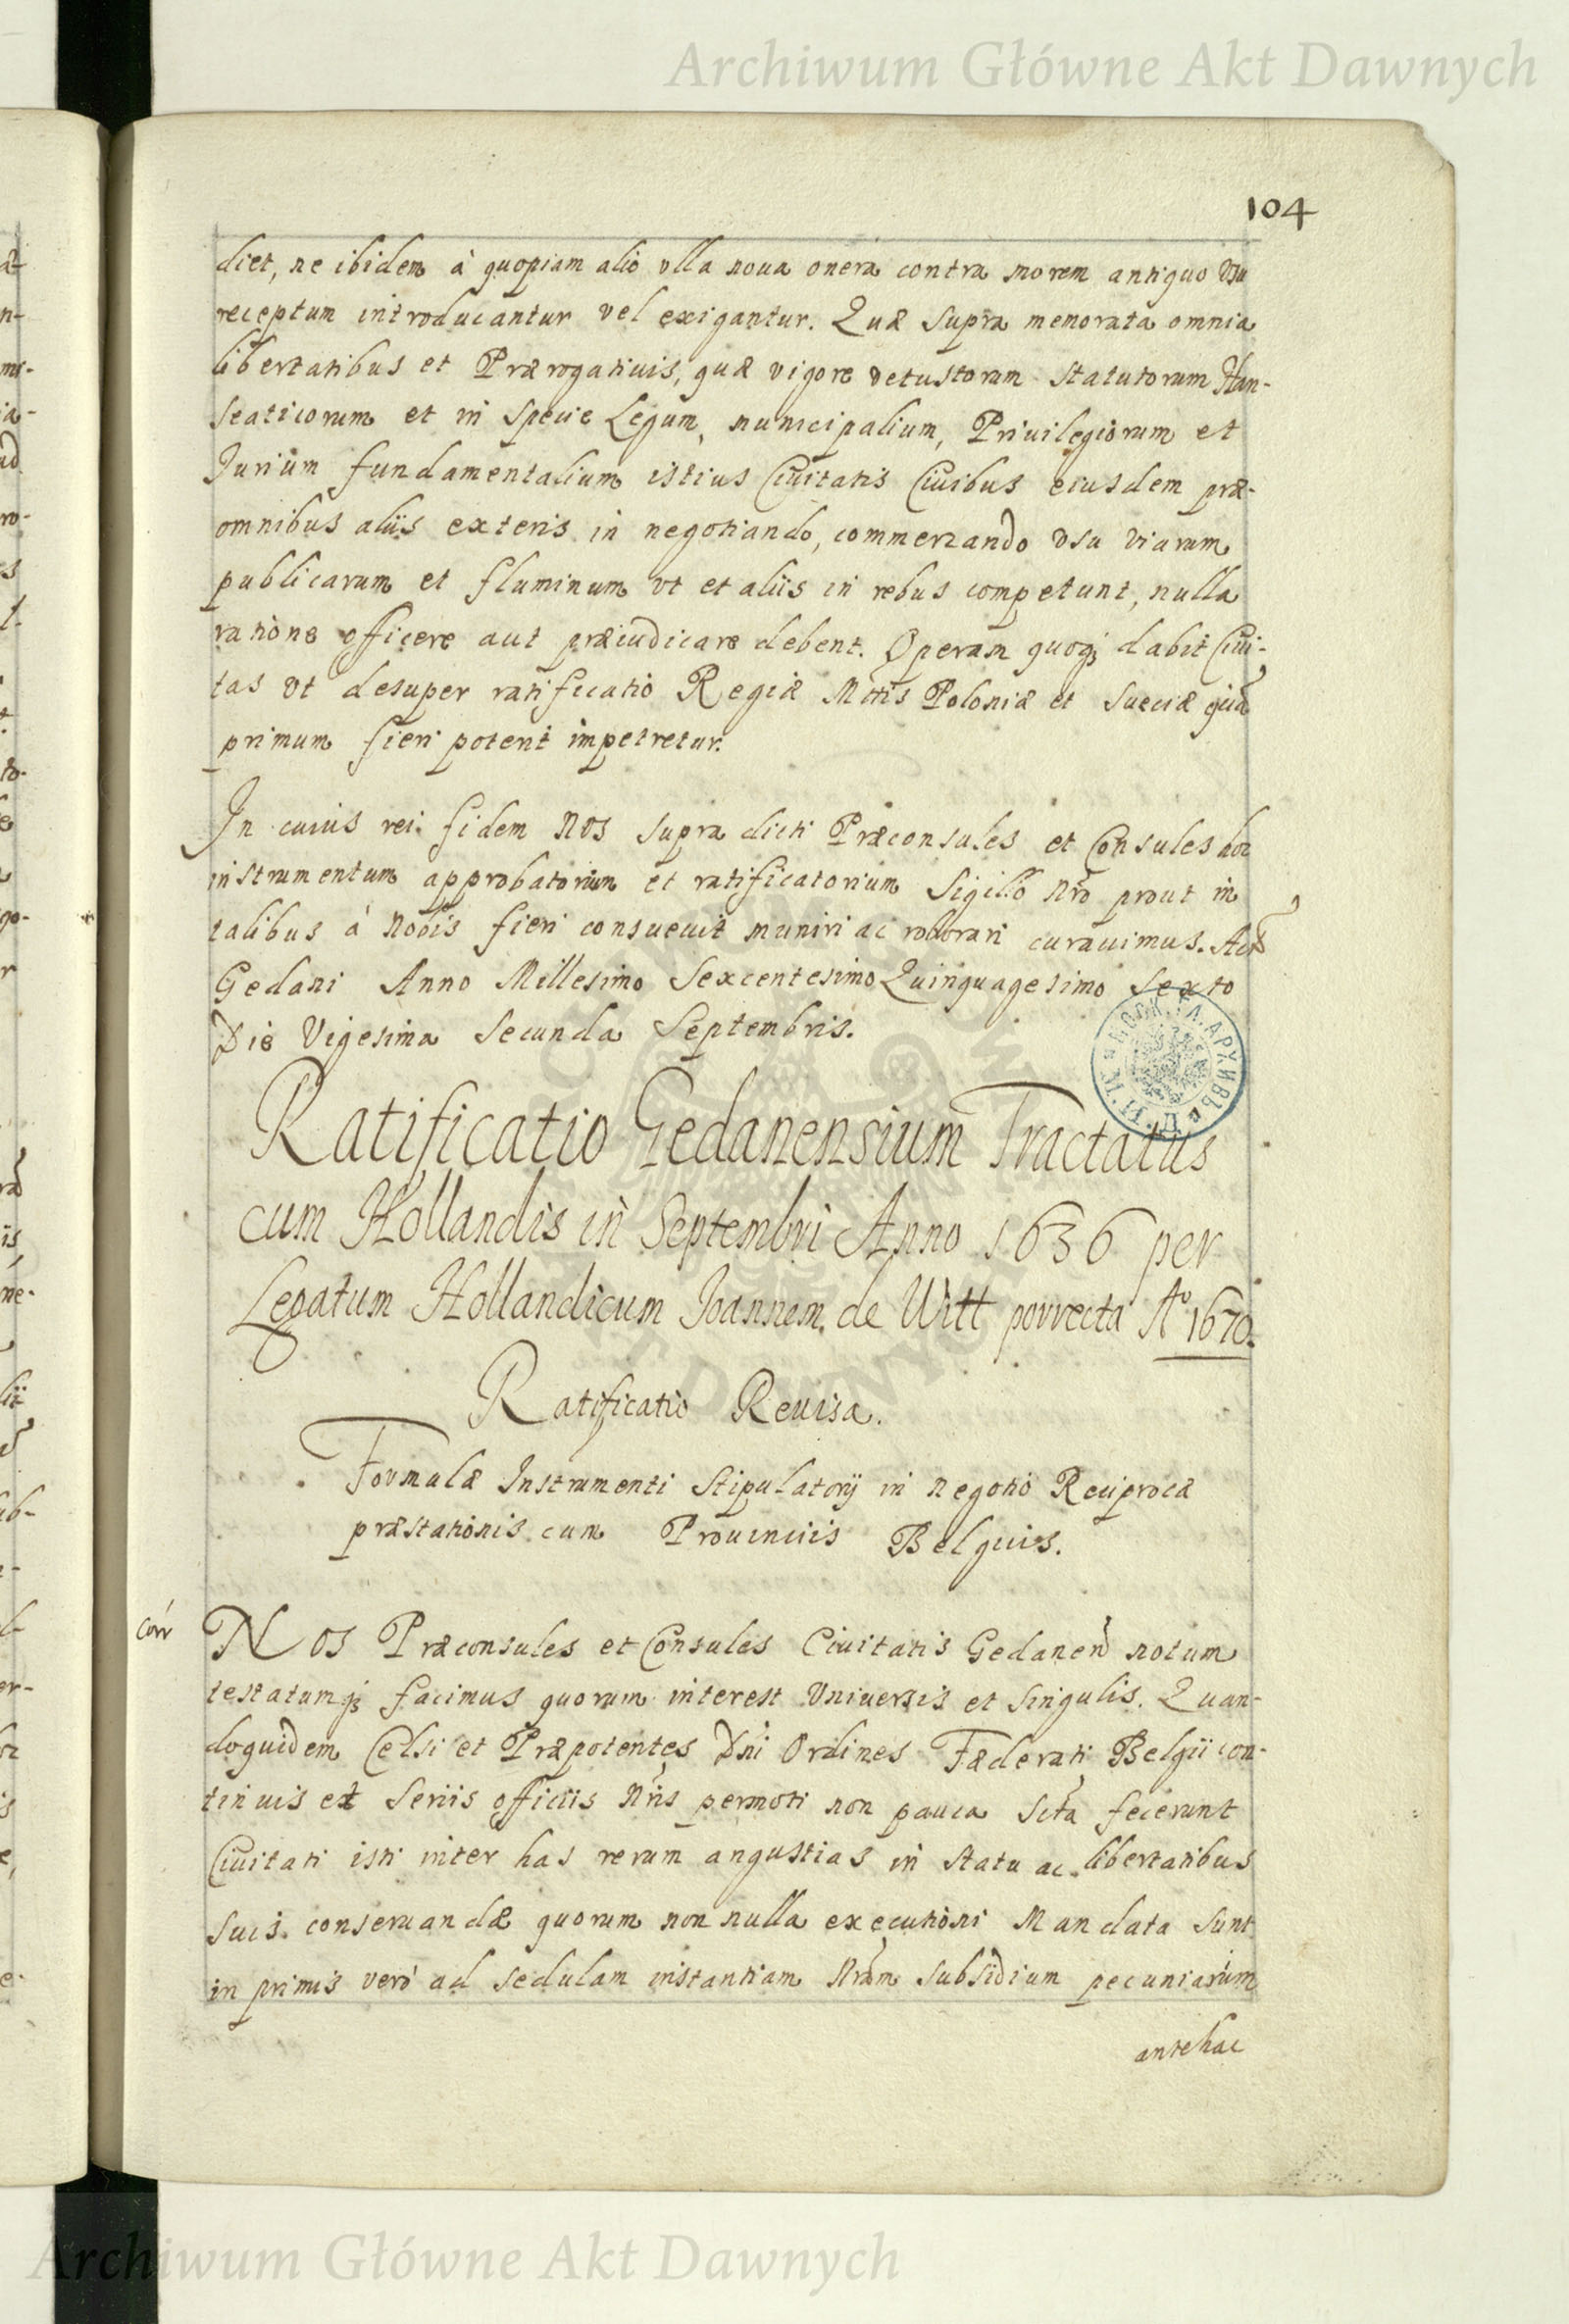 Archiwum Główne Akt Dawnych
104
diet, ne ibidem à quopiam alio vlla noua onera contra morem antiquo Vsu
receptum introducantur vel exigantur. Quæ supra memorata omnia
libertatibus et Prærogatiuis, quæ vigore vetustorum Statutorum Han-
seaticorum et in specie Legum, municipalium, Priuilegiorum et
Jurium fundamentalium istius Ciuitatis Ciuibus eiusdem præ-
omnibus aliis exteris in negotiando, commerzando vsu viarum
publicarum et fluminum vt et aliis in rebus competunt, nulla
ratione officere aut præiudicare debent. Operam quoqȝ dabit Ciui-
tas vt desuper ratificatio Regiæ Mttis Poloniæ et Sueciæ quã
primum fieri poterit impetretur.
In cuius rei fidem Nos supra dicti Præconsules et Consules hoc
instrumentum approbatorium et ratificatorium Sigillo Nrõ prout in
talibus à Nobis fieri consueuit muniri ac roborari curauimus. Act
Gedani Anno Millesimo Sexcentesimo Quinquagesimo Sexto
Die Vigesima Secunda Septembris.
Ratificatio Gedanensium Tractatus
cum Hollandis in Septembri Anno 1656 per
Legatum Hollandicum Joannem de Witt porrecta Aº 1670.
Ratificatio Reuisa.
Formulæ Instrumenti Stipulatorij in negotio Reciprocæ
præstationis cum Prouinciis Belgicis.
Corr
Nos Præconsules et Consules Ciuitatis Gedanen notum
testatumqȝ facimus quorum interest Vniuersis et singulis. Quan-
doquidem Celsi et Præpotentes Dni Ordines Fæderati Belgii con-
tinuis et seriis officiis Nris permoti non pauca Scta fecerunt
Ciuitati isti inter has rerum angustias in statu ac libertatibus
suis conseruandæ quorum non nulla executioni Mandata sunt
in primis verò ad sedulam instantiam Nram subsidium pecuniarum
antehac
Archiwum Główne Akt Dawnych